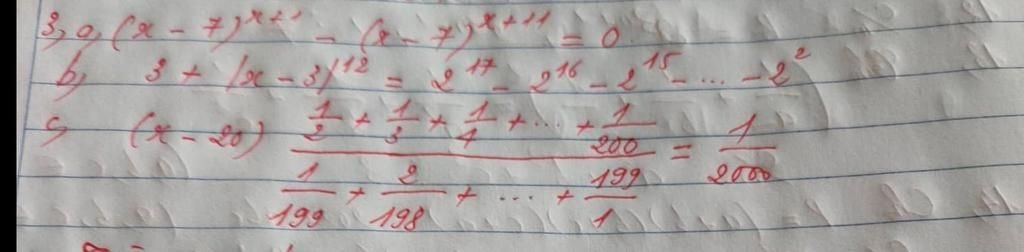 3, a, (x - 7)^{x+1} - (x - 7)^{x+11} = 0
b, 3 + |x - 3|^{12} = 2^{17} - 2^{16} - 2^{15} - ... - 2^{2}
c, (x - 20) \frac{\frac{1}{2} + \frac{1}{3} + \frac{1}{4} + ... + \frac{1}{200}}{\frac{1}{199} + \frac{2}{198} + ... + \frac{199}{1}} = \frac{1}{2000}